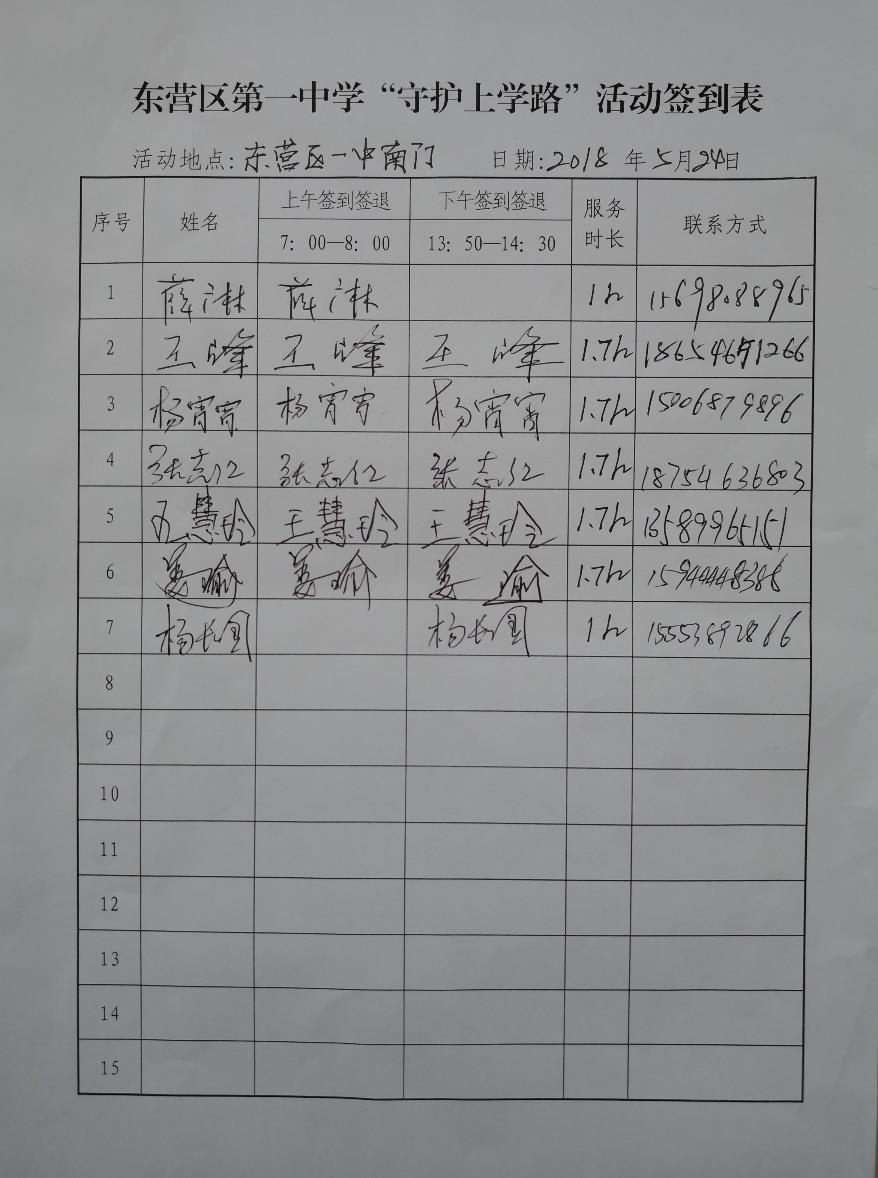 东营区第一中学“守护上学路”活动签到表
活动地点: 东营区一中南门 日期: 2018 年 5 月 24 日
序号 姓名 上午签到签退 下午签到签退 服务时长 联系方式
7: 00—8: 00 13: 50—14: 30
1 薛林 薛林 1h 15698088965
2 王峰 王峰 王 峰 1.7h 1266
3 杨宵宵 杨宵宵 杨宵宵 1.7h 15006879896
4 张志仁 张志仁 张志仁 1.7h 18754636803
5 王慧玲 王慧玲 王慧玲 1.7h 13589965151
6 姜瑜 姜瑜 姜瑜 1.7h
7 杨长国 杨长国 1h 15553892866
8
9
10
11
12
13
14
15